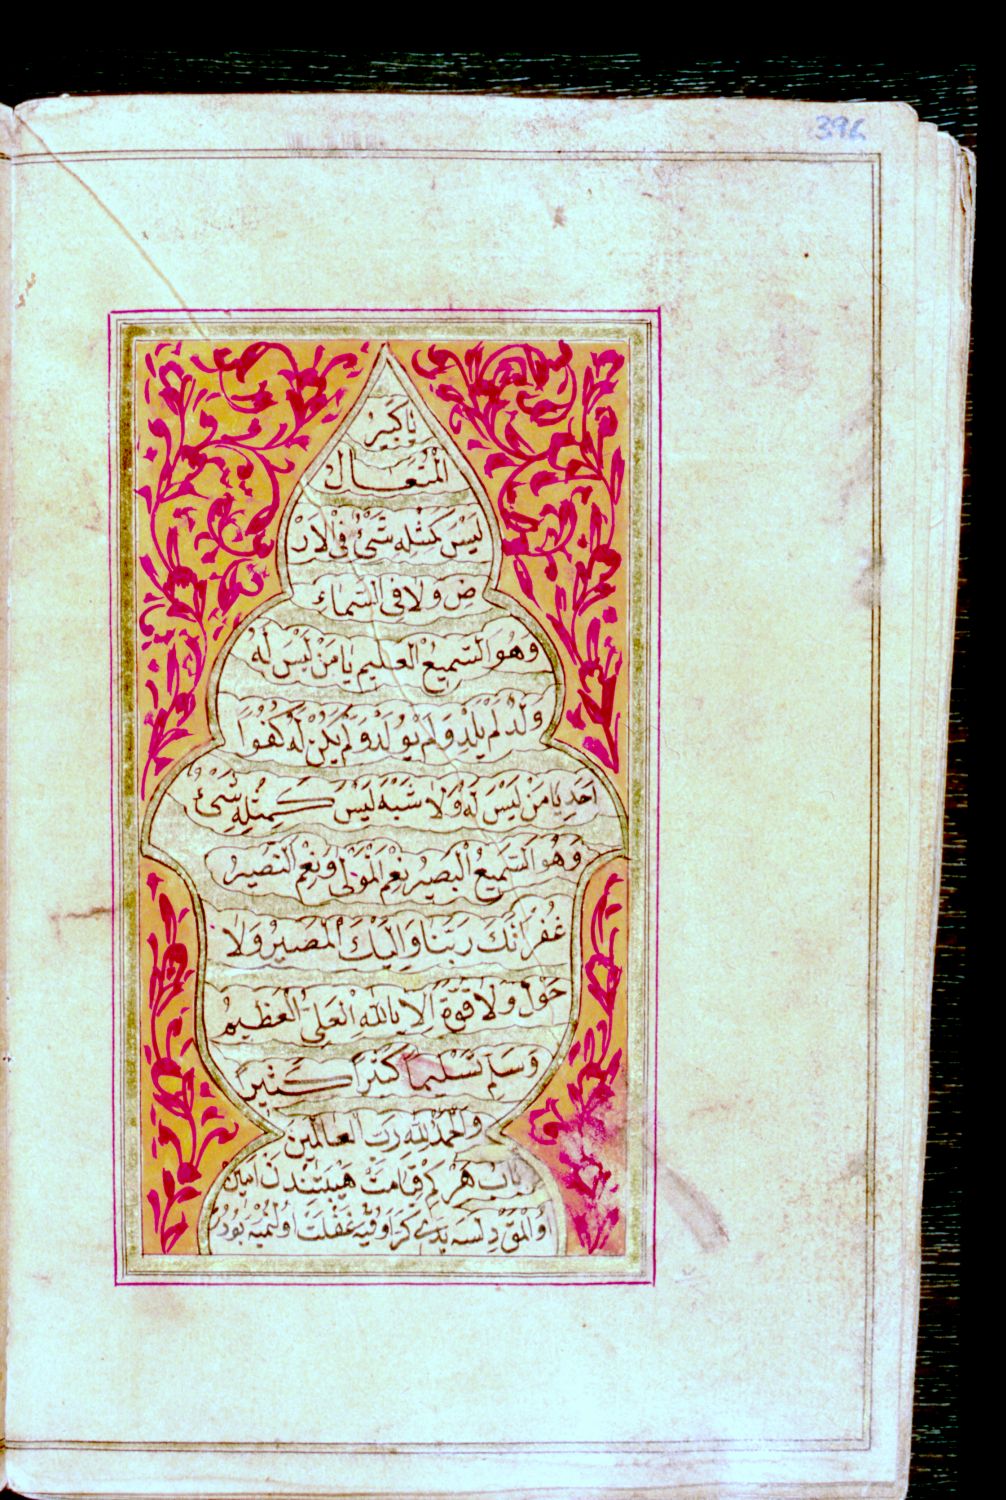 396
يا كبير
المتعال
ليس كمثله شئ في الار
ض ولا في السماء
وهو السميع العليم يا من ليس له
ولد لم يلد ولم يولد ولم يكن له كفوا
احد يا من ليس له ولا شبه ليس كمثله شئ
وهو السميع البصير نعم المولى ونعم النصير
غفرانك ربنا واليك المصير ولا
حول ولا قوة الا بالله العلي العظيم
وسلم تسليما كثيرا كثيرا
والحمد لله رب العالمين
باب هر كم قيامت هيبتندن
اولمق دلسه يدى كز اوقيه غفلت اولنميه بودر